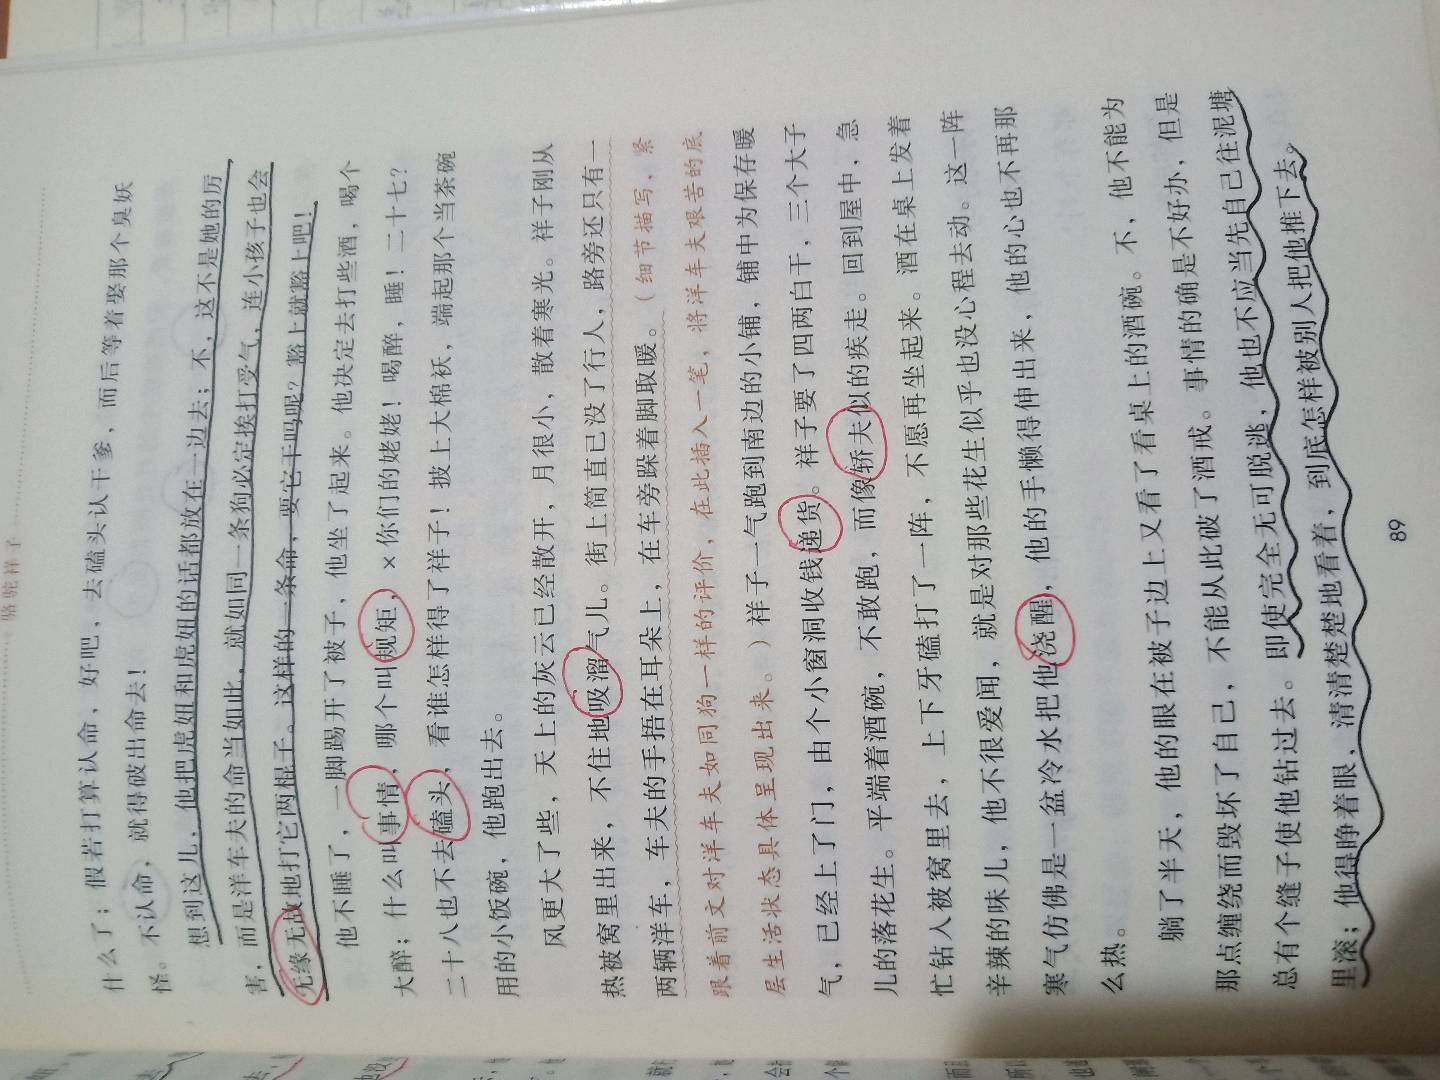 骆驼祥子
什么了；假若打算认命，好吧，去磕头认干爹，而后等着娶那个臭妖
怪。不认命，就得破出命去！
想到这儿，他把虎妞和虎妞的话都放在一边去；不，这不是她的厉
害，而是洋车夫的命当如此，就如同一条狗必定挨打受气，连小孩子也会
无缘无故地打它两棍子。这样的一条命，要它干吗呢？豁上就豁上吧！
他不睡了，一脚踢开了被子，他坐了起来。他决定去打些酒，喝个
大醉；什么叫事情，哪个叫规矩，×你们的姥姥！喝醉，睡！二十七？
二十八也不去磕头，看谁怎样得了祥子！披上大棉袄，端起那个当茶碗
用的小饭碗，他跑出去。
风更大了些，天上的灰云已经散开，月很小，散着寒光。祥子刚从
热被窝里出来，不住地吸溜气儿。街上简直已没了行人，路旁还只有一
两辆洋车，车夫的手捂在耳朵上，在车旁跺着脚取暖。（细节描写，紧
跟着前文对洋车夫如同狗一样的评价，在此插入一笔，将洋车夫艰苦的底
层生活状态具体呈现出来。）祥子一气跑到南边的小铺，铺中为保存暖
气，已经上了门，由个小窗洞收钱递货。祥子要了四两白干，三个大子
儿的落花生。平端着酒碗，不敢跑，而像轿夫似的疾走。回到屋中，急
忙钻入被窝里去，上下牙磕打了一阵，不愿再坐起来。酒在桌上发着
辛辣的味儿，他不很爱闻，就是对那些花生似乎也没心程去动。这一阵
寒气仿佛是一盆冷水把他浇醒，他的手懒得伸出来，他的心也不再那
么热。
躺了半天，他的眼在被子边上又看了看桌上的酒碗。不，他不能为
那点缠绕而毁坏了自己，不能从此破了酒戒。事情的确是不好办，但是
总有个缝子使他钻过去。即使完全无可脱逃，他也不应当先自己往泥塘
里滚；他得睁着眼，清清楚楚地看着，到底怎样被别人把他推下去。
89